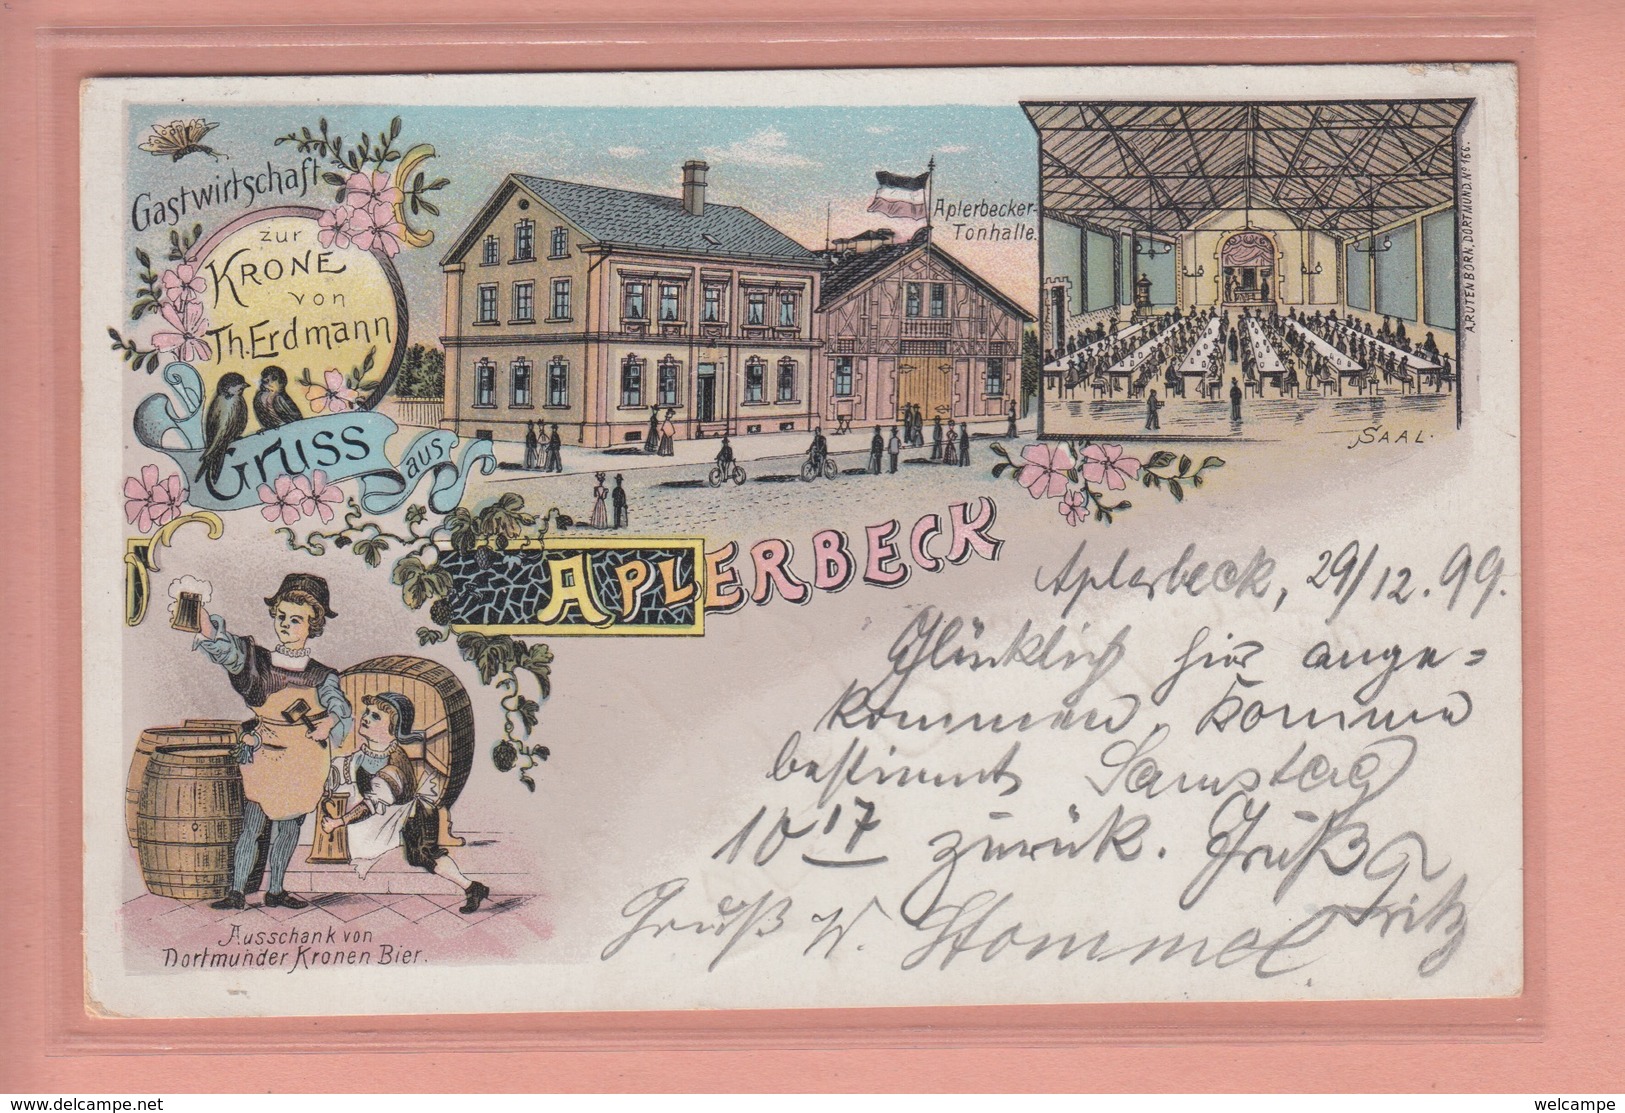 Gastwirtschaft
zur
KRONE
von
Th. Erdmann
Gruss aus
APLERBECK
Aplerbecker-
Tonhalle.
SAAL.
A. RUTENBORN, DORTMUND. No 166.
Ausschank von
Dortmunder Kronen Bier.
Aplerbeck, 29/12.99.
Glücklich hier ange=
kommen, komme
bestimmt Samstag
10 17 zurück. Gruß
Fritz
Gruß W. Stommel
www.delcampe.net
welcampe